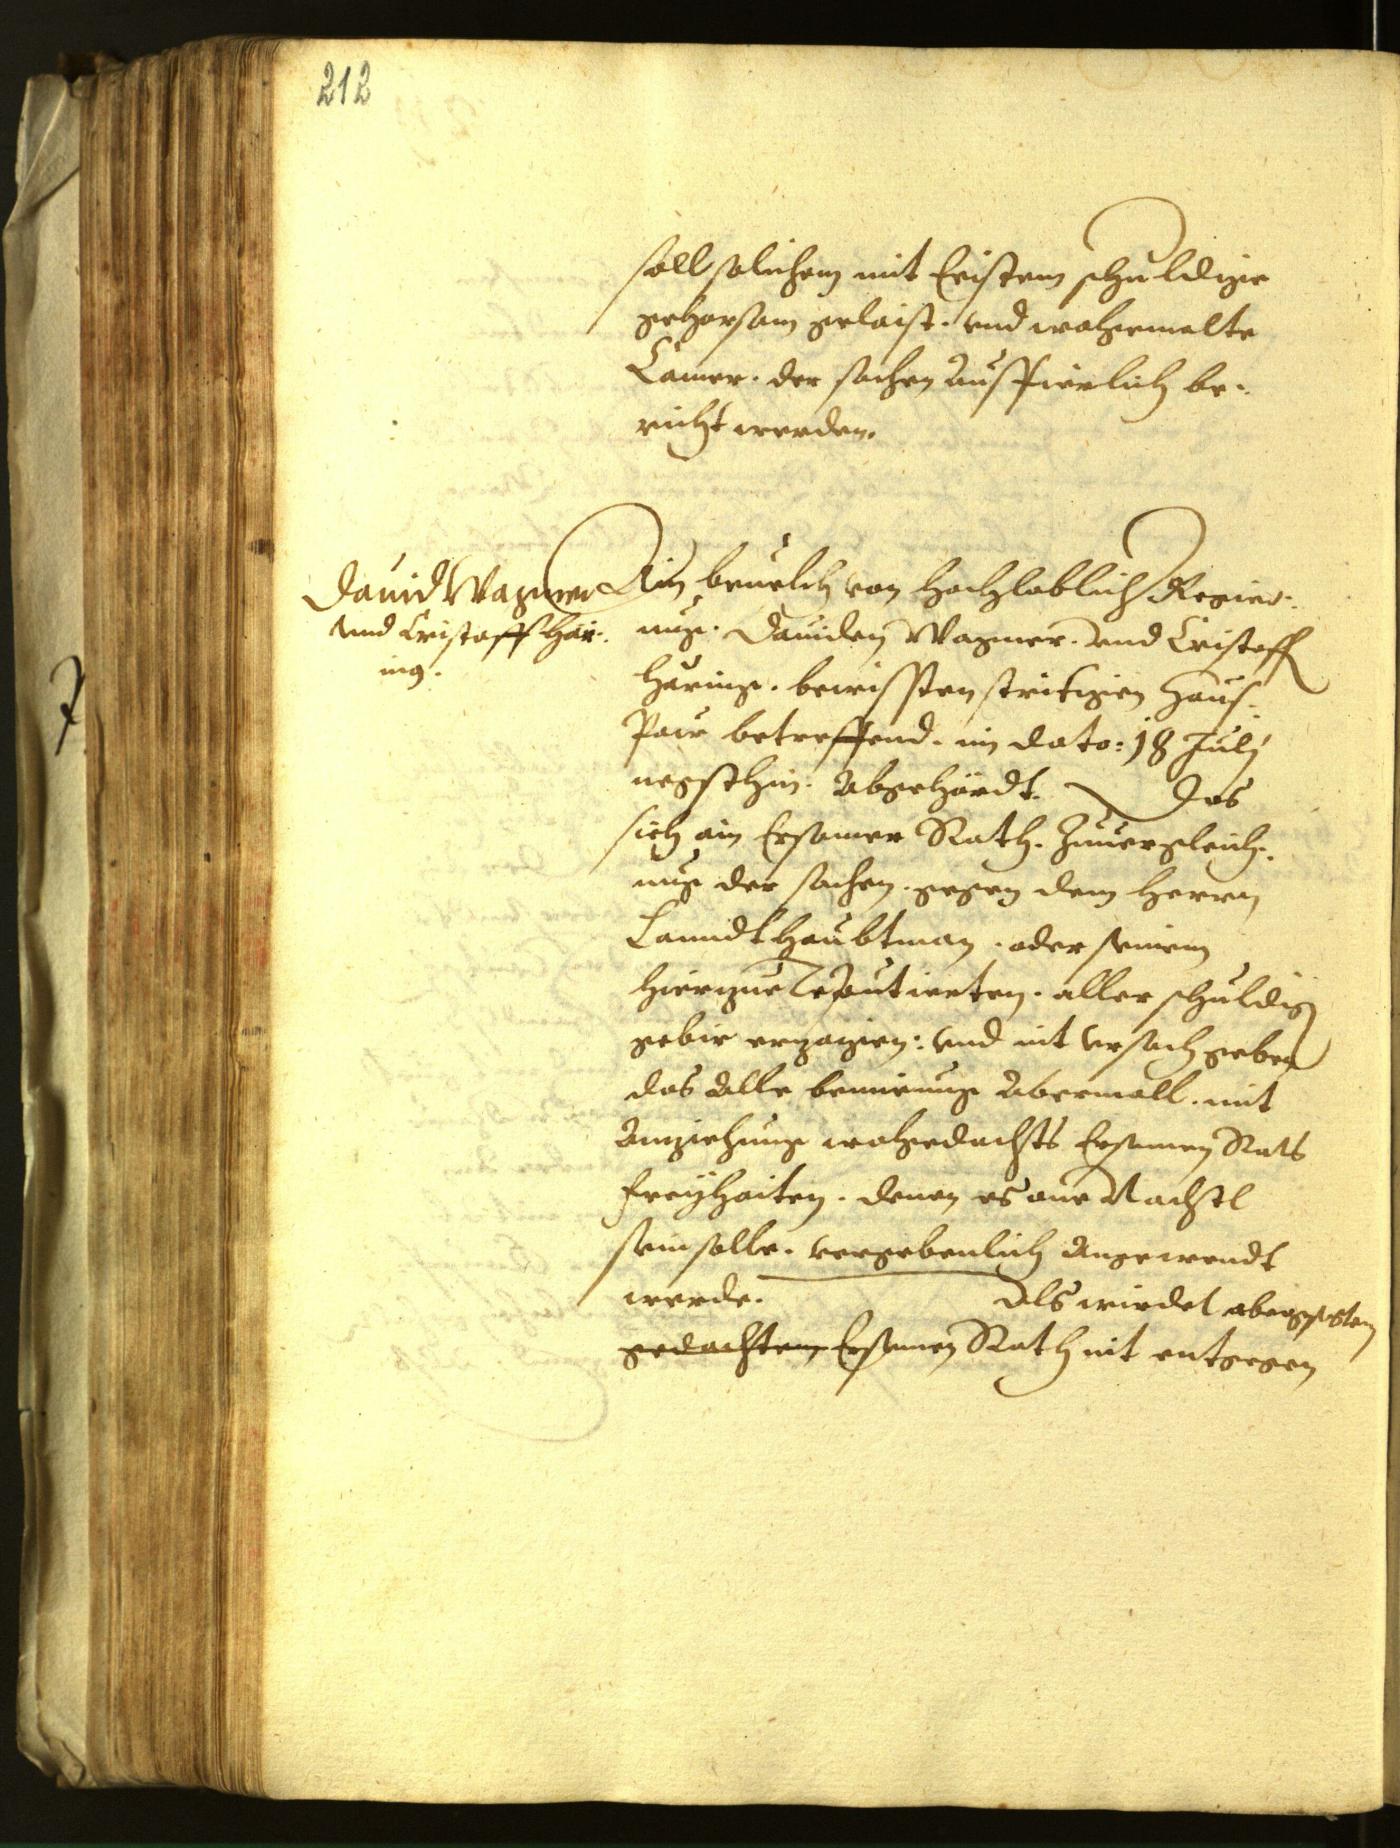 212
soll solichem mit Eristem schuldige
gehorsam gelaist. vnd wolgemelte
Camer. der sachen ausfierlich be¬
richt werden.
Dauid Wagner
vnd Cristoff Här¬
ing.
Ain beuelch von hochloblich Regier¬
ung. Dauiden Wagner. vnd Cristoff
Häring. bewissten stritigen Haus¬
Paw betreffend. im dato: 18 Julj
negsthin. abgehördt. Das
sich ain Ersamer Rath. Zuuergleich¬
ung der sachen. gegen dem Herrn
Lanndtshaubtman. oder seinem
hierzue Deputierten. aller schuldig
gebir erzaigen: vnd nit vrsach geben
das alle bemieung abermall. mit
anziehung wolgedachts Ersamen Rats
freyhaiten. denen es one Nachtl
sein solle. vergebenlich angewendt
werde. Als wirdet obengesetztem
gedachtem Ersamen Rath nit entgegen